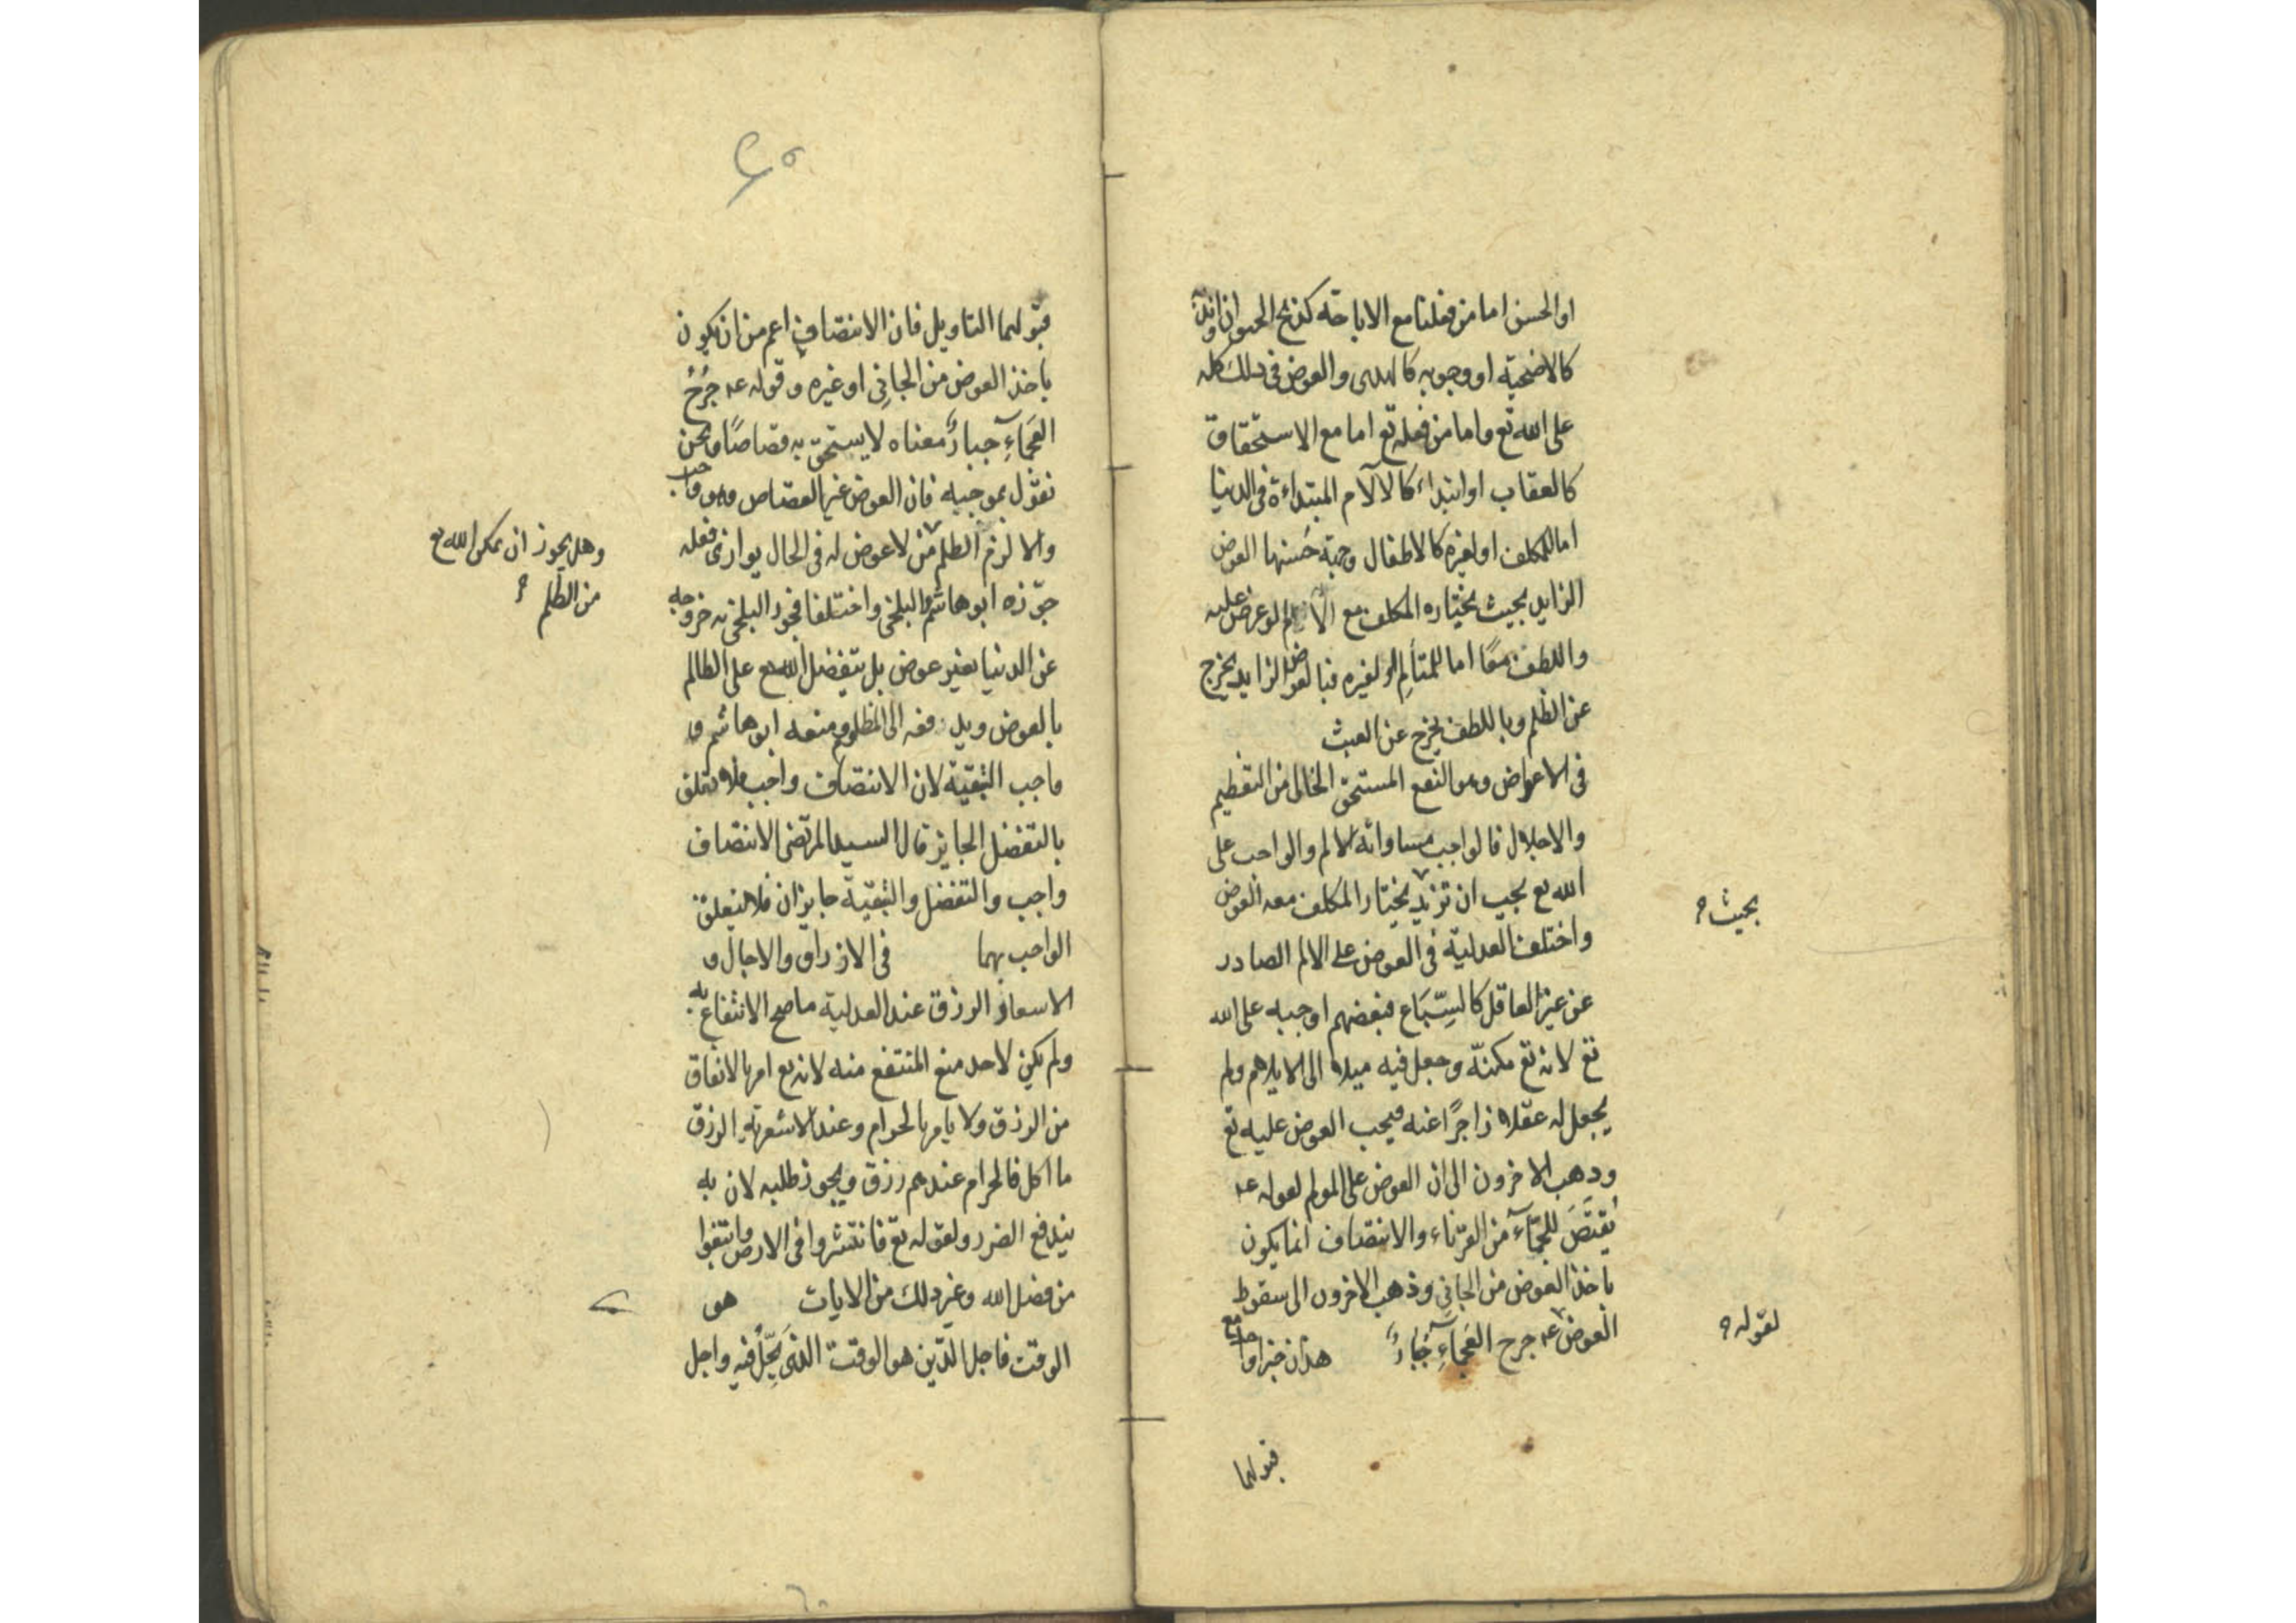 او الحسن اما من فعلنا مع الاباحة كذبح الحيوان او ندبه
كالاضحية او وجوبه كالهدى والعوض فى ذلك كله
على الله تع واما من فعله تع اما مع الاستحقاق
كالعقاب او ابتداء كالآلام المبتداءة فى الدنيا
اما للمكلف او لغيره كالاطفال وجهة حسنها العوض
الزايد بحيث يختاره المكلف مع الالم لو عرض عليه
واللطف معًا اما للمتألم او لغيره فبالعوض الزايد يخرج
عن الظلم وباللطف يخرج عن العبث
فى الاعواض وهو النفع المستحق الخالى من التعظيم
والاجلال فالواجب مساواته للالم والواجب على
الله تع يجب ان تزيد يختار المكلف معه العوض
بحيث
واختلف العدلية فى العوض على الالم الصادر
عن غير العاقل كالسِّبَاع فبعضهم اوجبه على الله
تع لانه تع مكنّه وجعل فيه ميلا الى الايلام ولم
يجعل له عقلا زاجرًا عنه فيجب العوض عليه تع
وذهب الاخرون الى ان العوض على المولم لقوله عه
يُقتَصَ للجمّآء من القرناء والانتصاف انما يكون
باخذ العوض من الجانى وذهب الاخرون الى سقوط
العوض عه جرح العَجمآءِ جُبارٌ هذان خبر واحد مع
لقوله
قبولهما
قبولهما التاويل فان الانتصاف اعم من ان يكون
باخذ العوض من الجانِى او غيره وقوله عه جُرْحُ
العَجمآءِ جبارٌ معناه لا يستحق به قصاصًا ونحن
نقول بموجبه فان العوض غير القصاص وهو واجب
والا لزم الظلم من لا عوض له فى الحال يوازى فعله
وهل يجوز ان يمكن الله تع
من الظلم
جوّزه ابو هاشم والبلخى واختلفا فجوز البلخى خروجه
عن الدنيا بغير عوض بل يتفضل الله تع على الظالم
بالعوض ويدفعه الى المظلوم ومنعه ابو هاشم و
واجب التبقية لان الانتصاف واجب فلا يعلق
بالتفضل الجايز قال السيد المرتضى الانتصاف
واجب والتفضل والتبقية جايزان فلا يتعلق
الواجب بهما فى الارزاق والاجال و
الاسعار الرزق عند العدلية ما صح الانتفاع به
ولم يكن لاحد منع المنتفع منه لانه تع امر بالانفاق
من الرزق ولا يامر بالحرام وعند الاشعرية الرزق
ما اكل فالحرام عندهم رزق ويجوز طلبه لان به
يندفع الضرر ولقوله تع فانتشروا فى الارض وابتغوا
من فضل الله وغير ذلك من الايات هو
الوقت فاجل الدّين هو الوقت الذى يَحِلّ فيه واجل